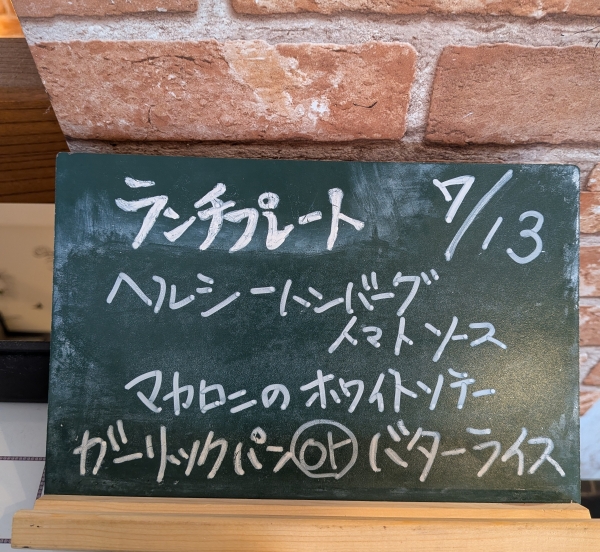 ランチプレート 7/13
ヘルシーハンバーグ
トマトソース
マカロニのホワイトソテー
ガーリックパン or バターライス